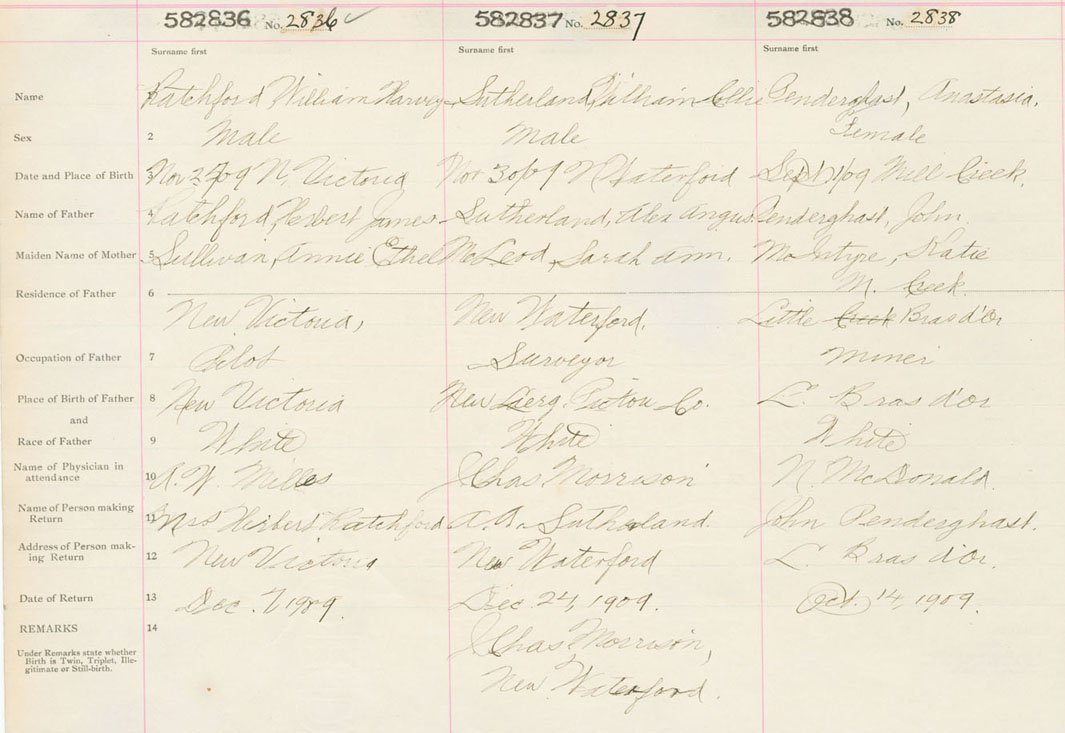 582836 No. 2836 582837 No. 2837 582838 No. 2838
Surname first Surname first Surname first
Name 1 Ratchford William Harvey Sutherland, William Ellie Penderghast, Anastasia.
Sex 2 Male Male Female
Date and Place of Birth 3 Nov 09 N. Victoria Nov 30/09 N Waterford Sept 09 Mill Creek.
Name of Father 4 Ratchford, Herbert James Sutherland, Alex Angus Penderghast, John
Maiden Name of Mother 5 Sullivan, Annie Ethel McLeod, Sarah Ann. McIntyre, Katie
Residence of Father 6 M. Creek.
New Victoria, New Waterford. Little Creek Bras d'Or
Occupation of Father 7 Pilot Surveyor Miner
Place of Birth of Father 8 New Victoria New Pictou Co. L. Bras d'Or
and
Race of Father 9 White White White
Name of Physician in 10 A. W. Miller J Chas Morrison N. McDonald.
attendance
Name of Person making 11 Mrs Herbert Ratchford A. A. Sutherland. John Penderghast.
Return
Address of Person mak- 12 New Victoria New Waterford L. Bras d'Or.
ing Return
Date of Return 13 Dec. 7/1909. Dec 24, 1909. Oct. 14, 1909.
REMARKS 14 J Chas Morrison,
Under Remarks state whether
Birth is Twin, Triplet, Ille-
gitimate or Still-birth.
New Waterford.